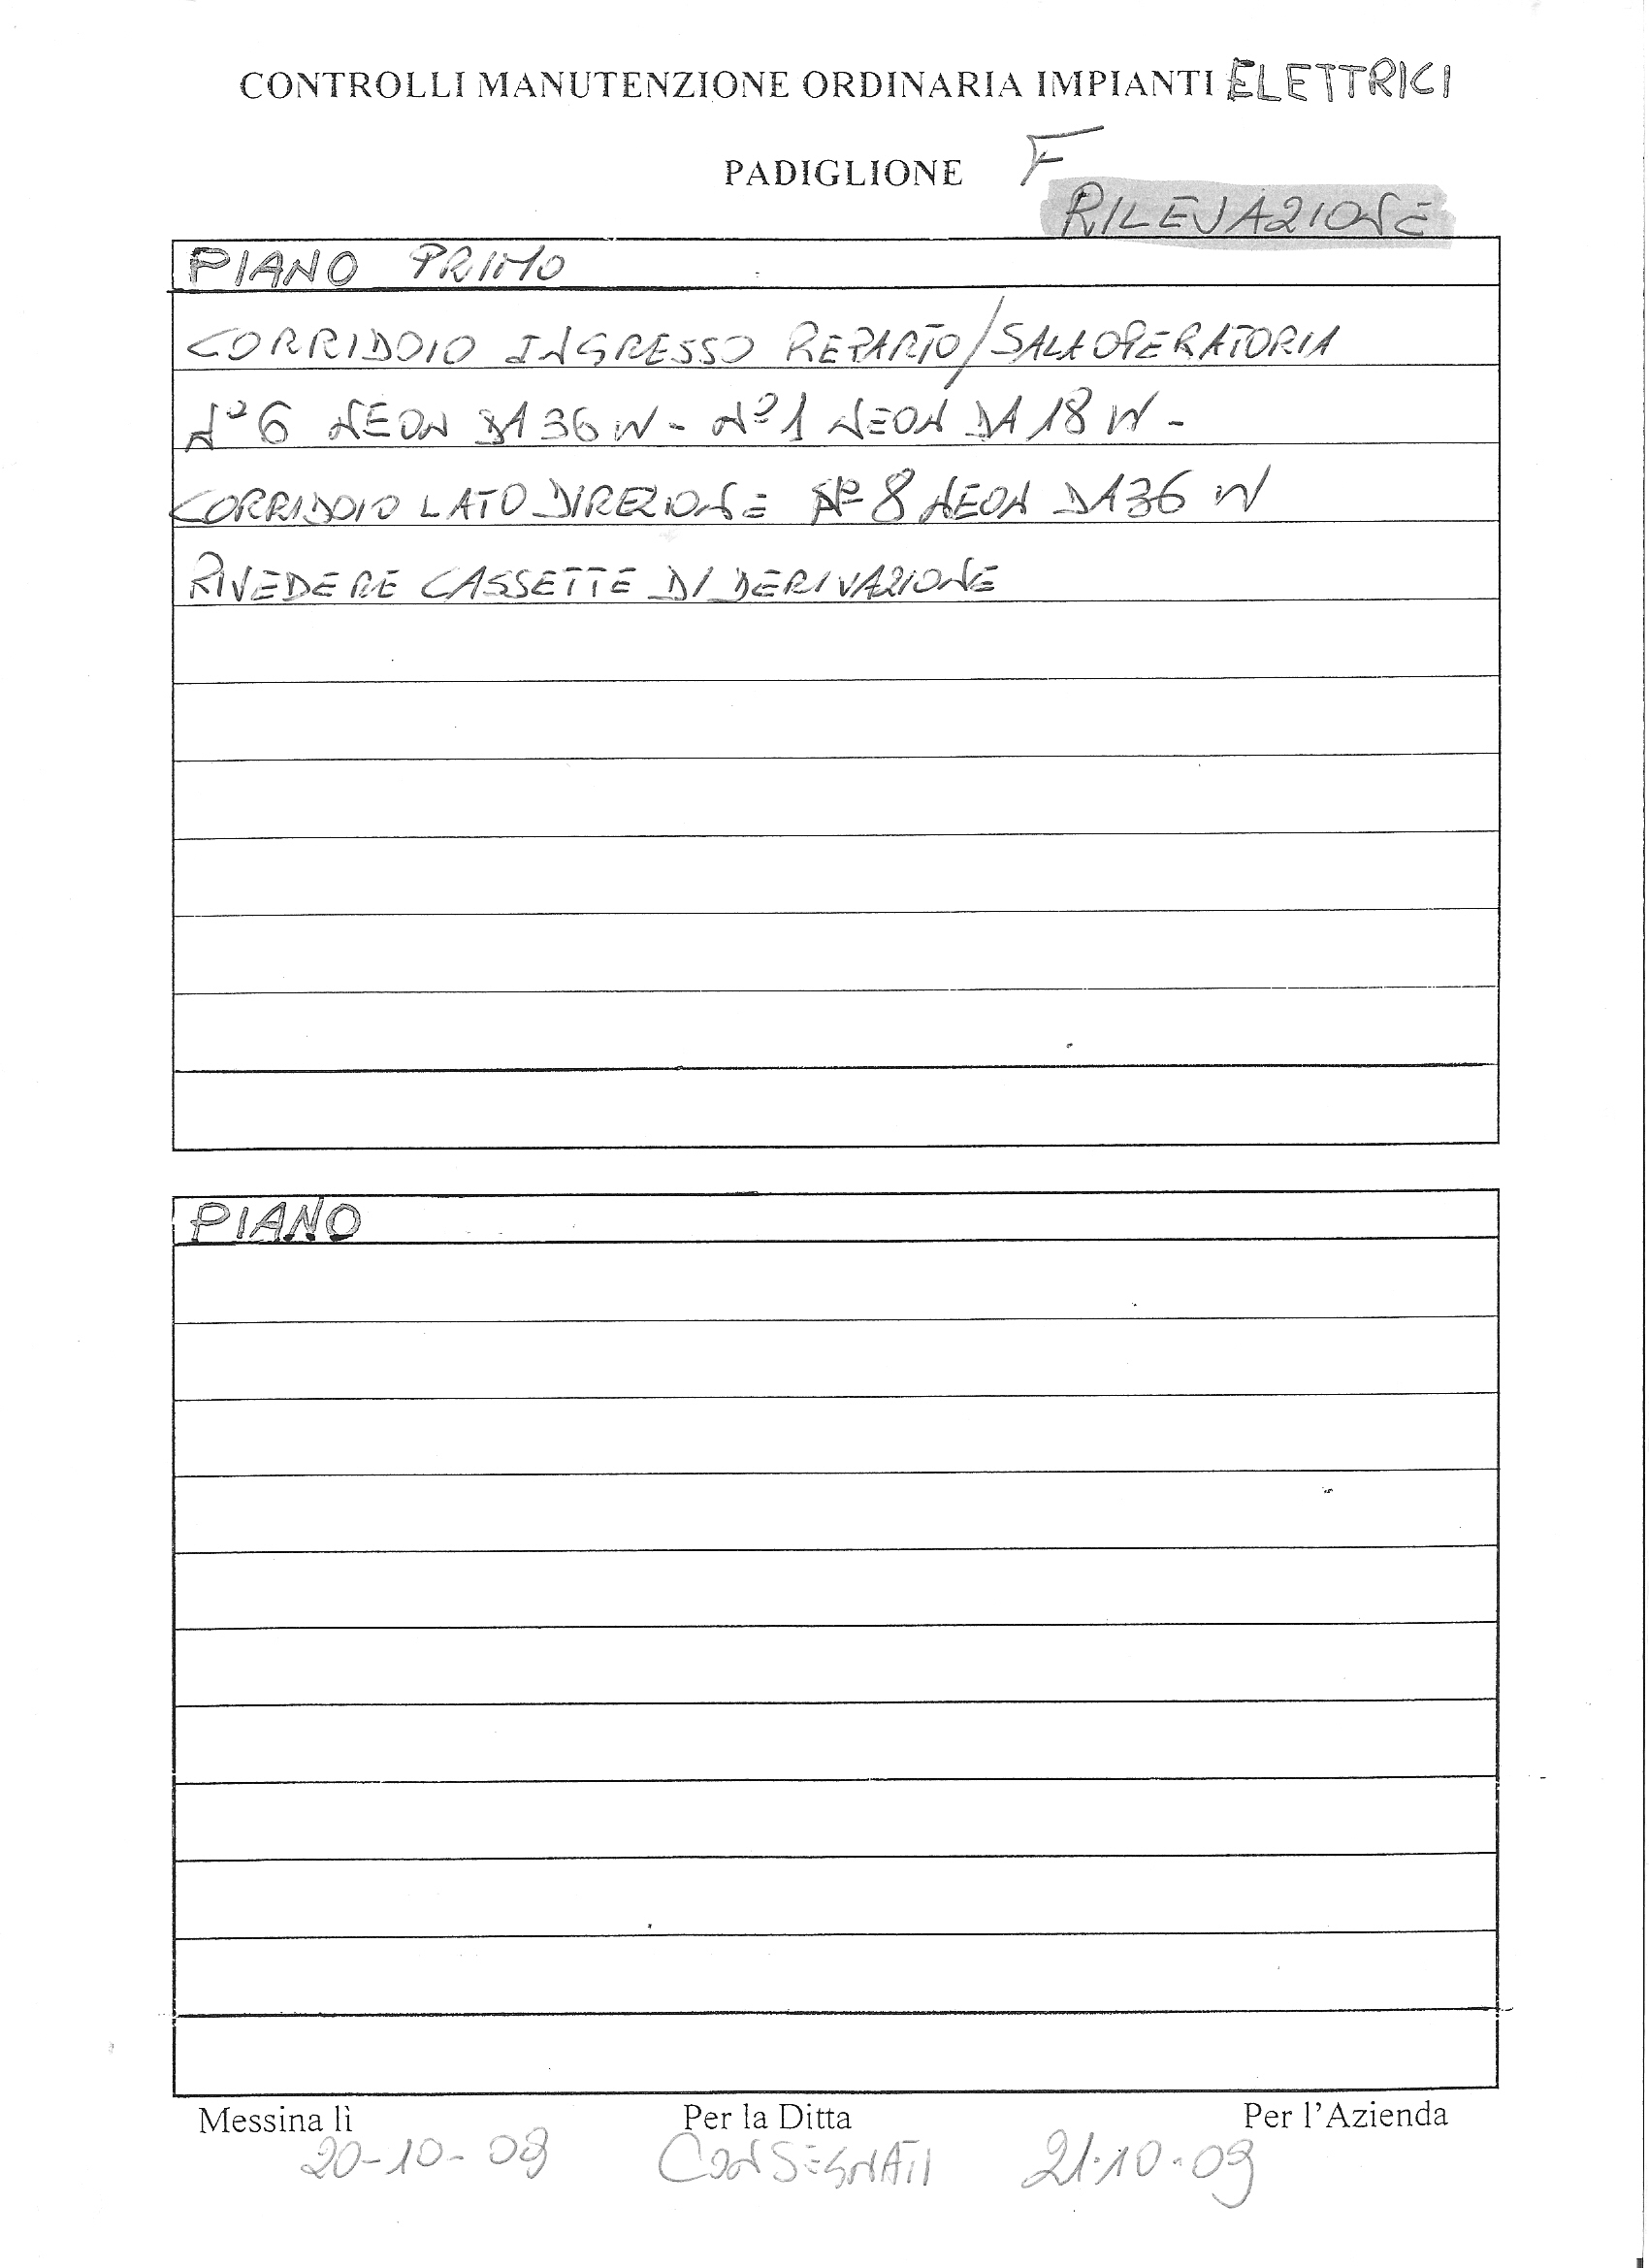 CONTROLLI MANUTENZIONE ORDINARIA IMPIANTI ELETTRICI
PADIGLIONE F
RILEVAZIONE
PIANO PRIMO
CORRIDOIO INGRESSO REPARTO/SALA OPERATORIA
N° 6 NEON DA 36 W - N° 1 NEON DA 18 W -
CORRIDOIO LATO DIREZIONE N° 8 NEON DA 36 W
RIVEDERE CASSETTE DI DERIVAZIONE
PIANO
Messina lì Per la Ditta Per l'Azienda
20-10-09 CONSEGNATI 21.10.09